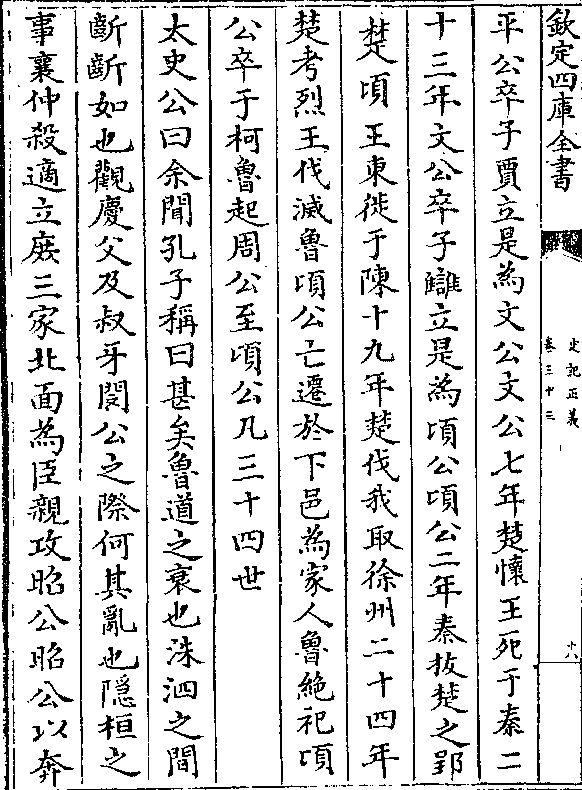 欽定四庫全書
史記正義
卷三十三
十八
平公卒子賈立是為文公文公七年楚懷王死于秦二
十三年文公卒子讎立是為頃公頃公二年秦拔楚之郢
楚頃王東徙于陳十九年楚伐我取徐州二十四年
楚考烈王伐滅魯頃公亡遷於下邑為家人魯絶祀頃
公卒于柯魯起周公至頃公凡三十四世
太史公曰余聞孔子稱曰甚矣魯道之衰也洙泗之間
齗齗如也觀慶父及叔牙閔公之際何其亂也隠桓之
事襄仲殺適立庻三家北面為臣親攻昭公昭公以奔